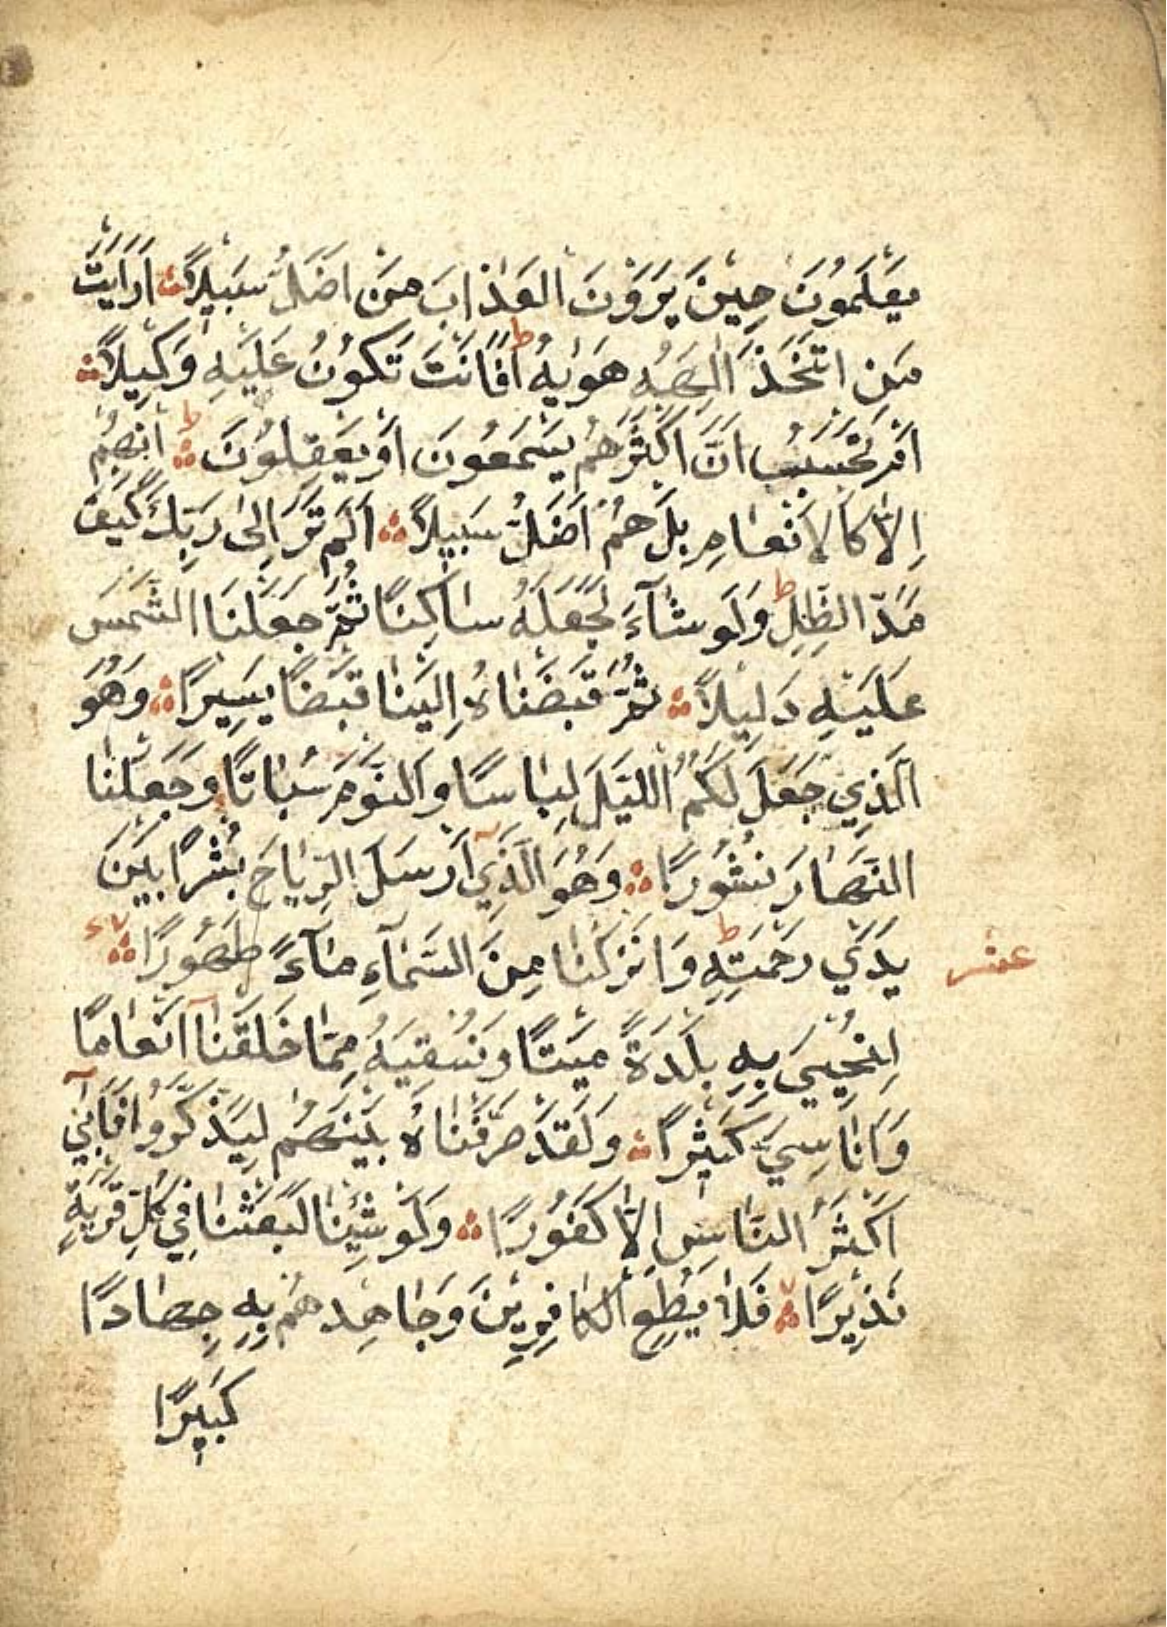 يَعْلَمُونَ حِينَ يَرَوْنَ الْعَذَابَ مَنْ اَضَلُّ سَبِيلاً اَرَاَيْتَ
مَنِ اتَّخَذَ اِلٰهَهُ هَوٰيهُ ط اَفَاَنْتَ تَكُونُ عَلَيْهِ وَكِيلاً
اَمْ تَحْسَبُ اَنَّ اَكْثَرَهُمْ يَسْمَعُونَ اَوْ يَعْقِلُونَ ط اِنْهُمْ
اِلاَّ كَالاَنْعَامِ بَلْ هُمْ اَضَلُّ سَبِيلاً اَلَمْ تَرَ اِلٰى رَبِّكَ كَيْفَ
مَدَّ الظِّلَّ ط وَلَوْ شَآءَ لَجَعَلَهُ سَاكِنًا ثُمَّ جَعَلْنَا الشَّمْسَ
عَلَيْهِ دَلِيلاً ثُمَّ قَبَضْنَاهُ اِلَيْنَا قَبْضًا يَسِيرًا وَهُوَ
الَّذِي جَعَلَ لَكُمُ اللَّيْلَ لِبَاسًا وَالنَّوْمَ سُبَاتًا وَجَعَلْنَا
النَّهَارَ نُشُورًا وَهُوَ الَّذِي اَرْسَلَ الرِّيَاحَ بُشْرًا بَيْنَ
يَدَيْ رَحْمَتِهِ ط وَاَنْزَلْنَا مِنَ السَّمَآءِ مَآءً طَهُورًا
عشر
لِنُحْيِيَ بِهِ بَلْدَةً مَيْتًا وَنُسْقِيَهُ مِمَّا خَلَقْنَا اَنْعَامًا
وَاَنَاسِيَّ كَثِيرًا وَلَقَدْ صَرَّفْنَاهُ بَيْنَهُمْ لِيَذَّكَّرُوا فَاَبٰٓي
اَكْثَرُ النَّاسِ اِلاَّ كُفُورًا وَلَوْ شِئْنَا لَبَعَثْنَا فِي كُلِّ قَرْيَةٍ
نَذِيرًا فَلاَ يُطِعِ الْكَافِرِينَ وَجَاهِدْهُمْ بِهِ جِهَادًا
كَبِيرًا